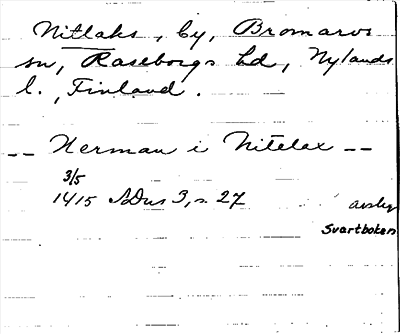 Nitlaks, by, Bromarvs
sn, Raseborgs hd, Nylands
l., Finland.
-- Herman i Nitelax --
3/5
1415 SDns 3, s. 27
avskr
Svartboken